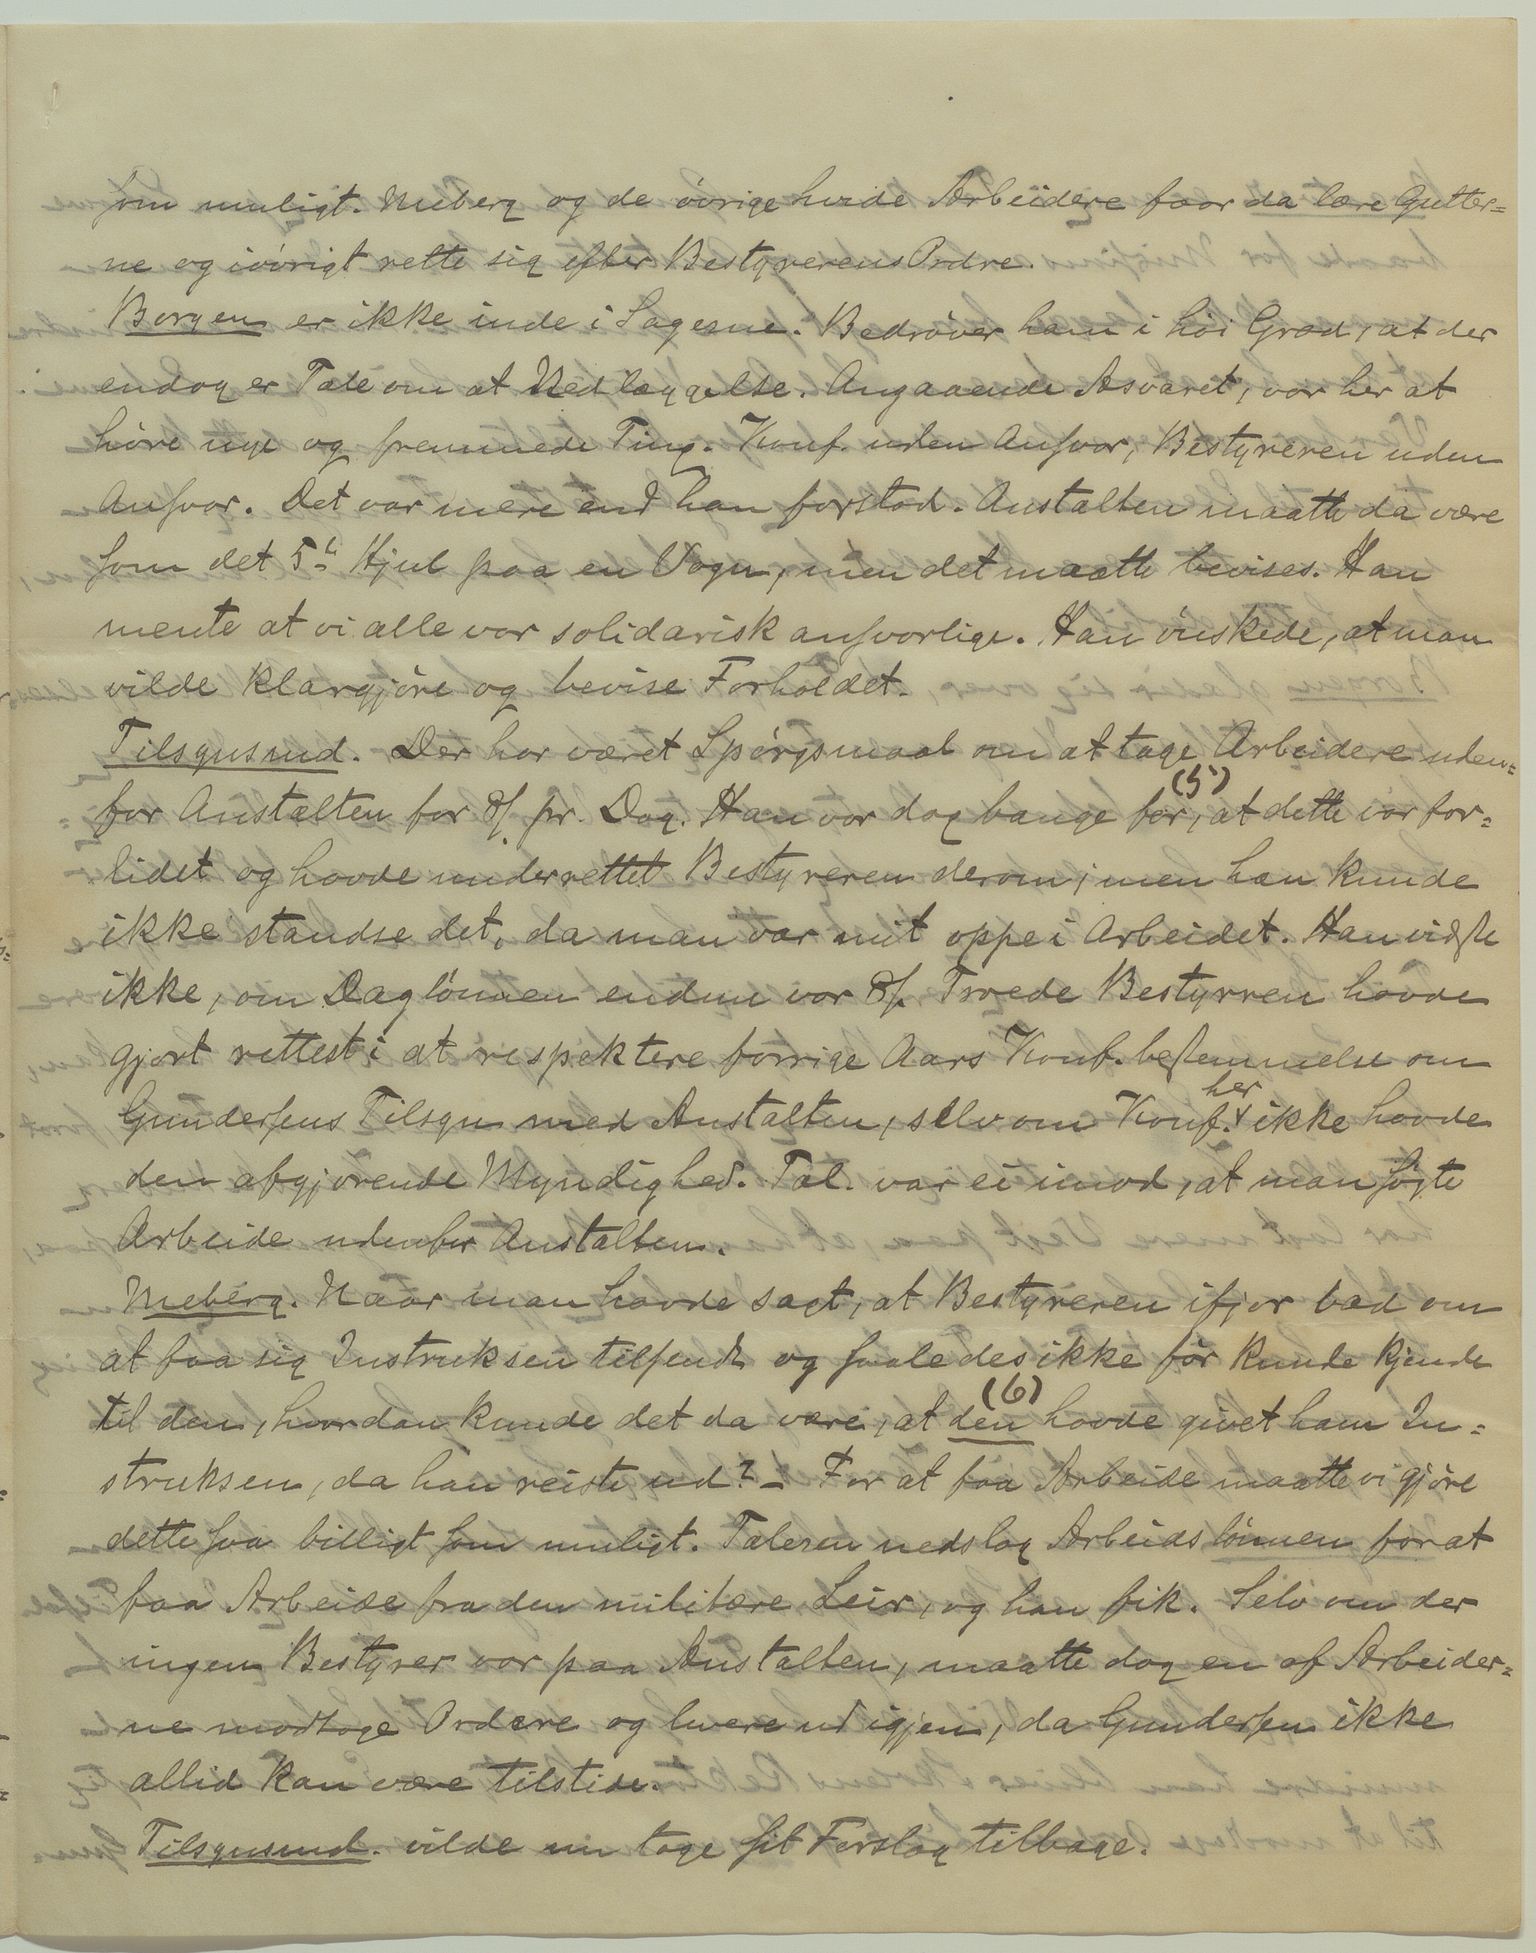 som muligt. Meberg og de övrige hvide Arbeidere faar da lære Gutter=
ne og iövrigt rette sig efter Bestyrerens Ordre.
Borgen er ikke inde i Sagerne. Bedröver ham i höi Grad, at der
endog er Tale om at Nedlæggelse. Angaaende Asvaret, var her at
höre nye og fremmede Ting. Konf. uden Ansvar, Bestyreren uden
Ansvar. Det var mere end han forstod. Anstalten maatte da være
som det 5te Hjul paa en Vogn, men det maatte bevises. Han
mente at vi alle var solidarisk ansvarlige. Han önskede, at man
vilde klargjöre og bevise Forholdet.
Tilsgusund. Der har været Spörgsmaal om at tage Arbeidere uden=
(5)
for Anstalten for 8/ pr. Dag. Han var dog bange for, at dette var for=
lidet og havde underrettet Bestyreren derom, men han kunde
ikke standse det, da man var mit oppe i Arbeidet. Han vidste
ikke, om Daglönnen endnu var 8/. Troede Bestyrren havde
gjort rettest i at respektere forrige Aars Konf. bestemmelse om
her
Gundersens Tilsgn med Anstalten, selv om Konf. ikke havde
den afgjörende Myndighed. Tal. var ei imod, at man sögte
Arbeide udenfor Anstalten.
Meberg. Naar man havde sagt, at Bestyreren ifjor bad om
at faa sig Instruksen tilsendt og saaledes ikke för kunde kjende
(6)
til den, hvordan kunde det da være, at den havde givet ham In=
struksen, da han reiste ud? – For at faa Arbeide maatte vi gjöre
dette saa billigt som muligt. Taleren nedslog Arbeidslönnen for at
faa Arbeide fra den militære Leir, og han fik. Selv om der
ingen Bestyrer var paa Anstalten, maatte dog en af Arbeider=
ne modtage Ordere og levere ud igjen, da Gundersen ikke
altid kan være tilstede.
Tilsgusund. vilde nu tage sit Forslag tilbage.